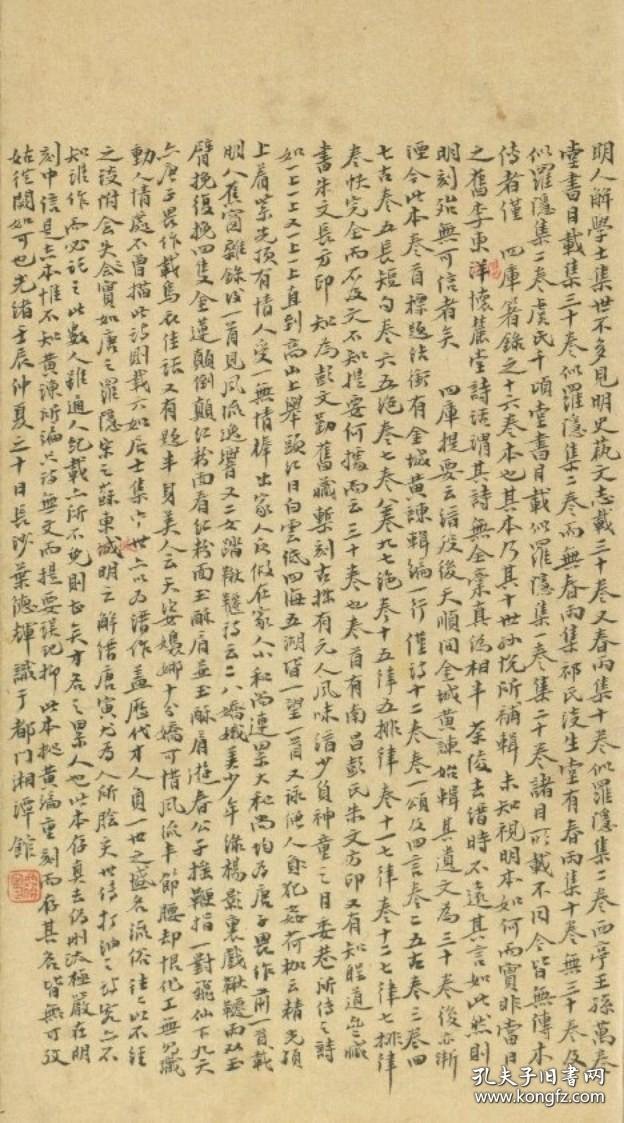 明人解學士集世不多見明史藝文志載三十卷又春雨集十卷似羅隱集二卷西亭王孫萬卷
堂書目載集三十卷似羅隱集二卷而無春雨集祁氏淡生堂有春雨集十卷無三十卷及
似羅隱集二卷虞氏千頃堂書目載似羅隱集一卷集二十卷諸目所載不同今皆無傳本
傳者僅 四庫箸錄之十六卷本也其本乃其十世孫悅所補輯未知視明本如何而實非當日
之舊李東洋懷麓堂詩話謂其詩無全稾真偽相半 茶陵去縉時不遠其言如此然則
明刻殆無可信者矣 四庫提要云縉歿後天順間金城黃諫始輯其遺文為三十卷後亦漸
湮今此本卷首標題結銜有金城黃諫輯編一行僅詩十二卷卷一頌及四言卷二五古卷三卷四
七古卷五長短句卷六五絕卷七卷八卷九七絕卷十五律五排律卷十一七律卷十二七律七排律
卷帙完全而不及文不知提要何據而云三十卷也卷首有南昌彭氏朱文方印又有知聖道齋藏
書朱文長方印 知為彭文勤舊藏槧刻古雅有元人風味縉少負神童之目委巷所傳之詩
如一上一上又一上一上直到高山上舉頭紅日白雲低四海五湖皆一望一首又詠僧人身犯姦荷枷云精光頂
上着紫光頂有情人受一無情棒出家人反做在家人小和尚連累大和尚均為唐子畏作前一首載
明人蕉窗雜錄後一首見風流逸響又二女蹴鞦韆詩云二八嬌娥美少年綠楊影裏戲鞦韆兩双玉
臂挽復挽四隻金蓮顛倒顛紅粉面看紅粉面玉酥肩並玉酥肩游春公子搖鞭指一對飛仙下九天
亦唐子畏作載焉衣佳話又有題半身美人云天姿嬝娜十分嬌可惜風流半節腰却恨化工無見識
動人情處不曾描此詩則載六如居士集中世亦以為縉作蓋歷代才人負一世之盛名流俗往往以不經
之談附會失實如唐之羅隱宋之蘇東城明之解縉唐寅尤為人所膾炙世傳打油之詩究亦不
知誰作而必託之此數人雖通人紀載亦所不免則甚矣才名之累人也此本存真去偽刪汰極嚴在明
刻中信是善本惟不知黃諫所編只詩無文而提要誤記抑此本從黃編重刻而存其名皆無可攷
姑從闕如可也光緒壬辰仲夏二十日長沙葉德輝識于都門湘潭館
孔夫子旧书网
www.kongfz.com